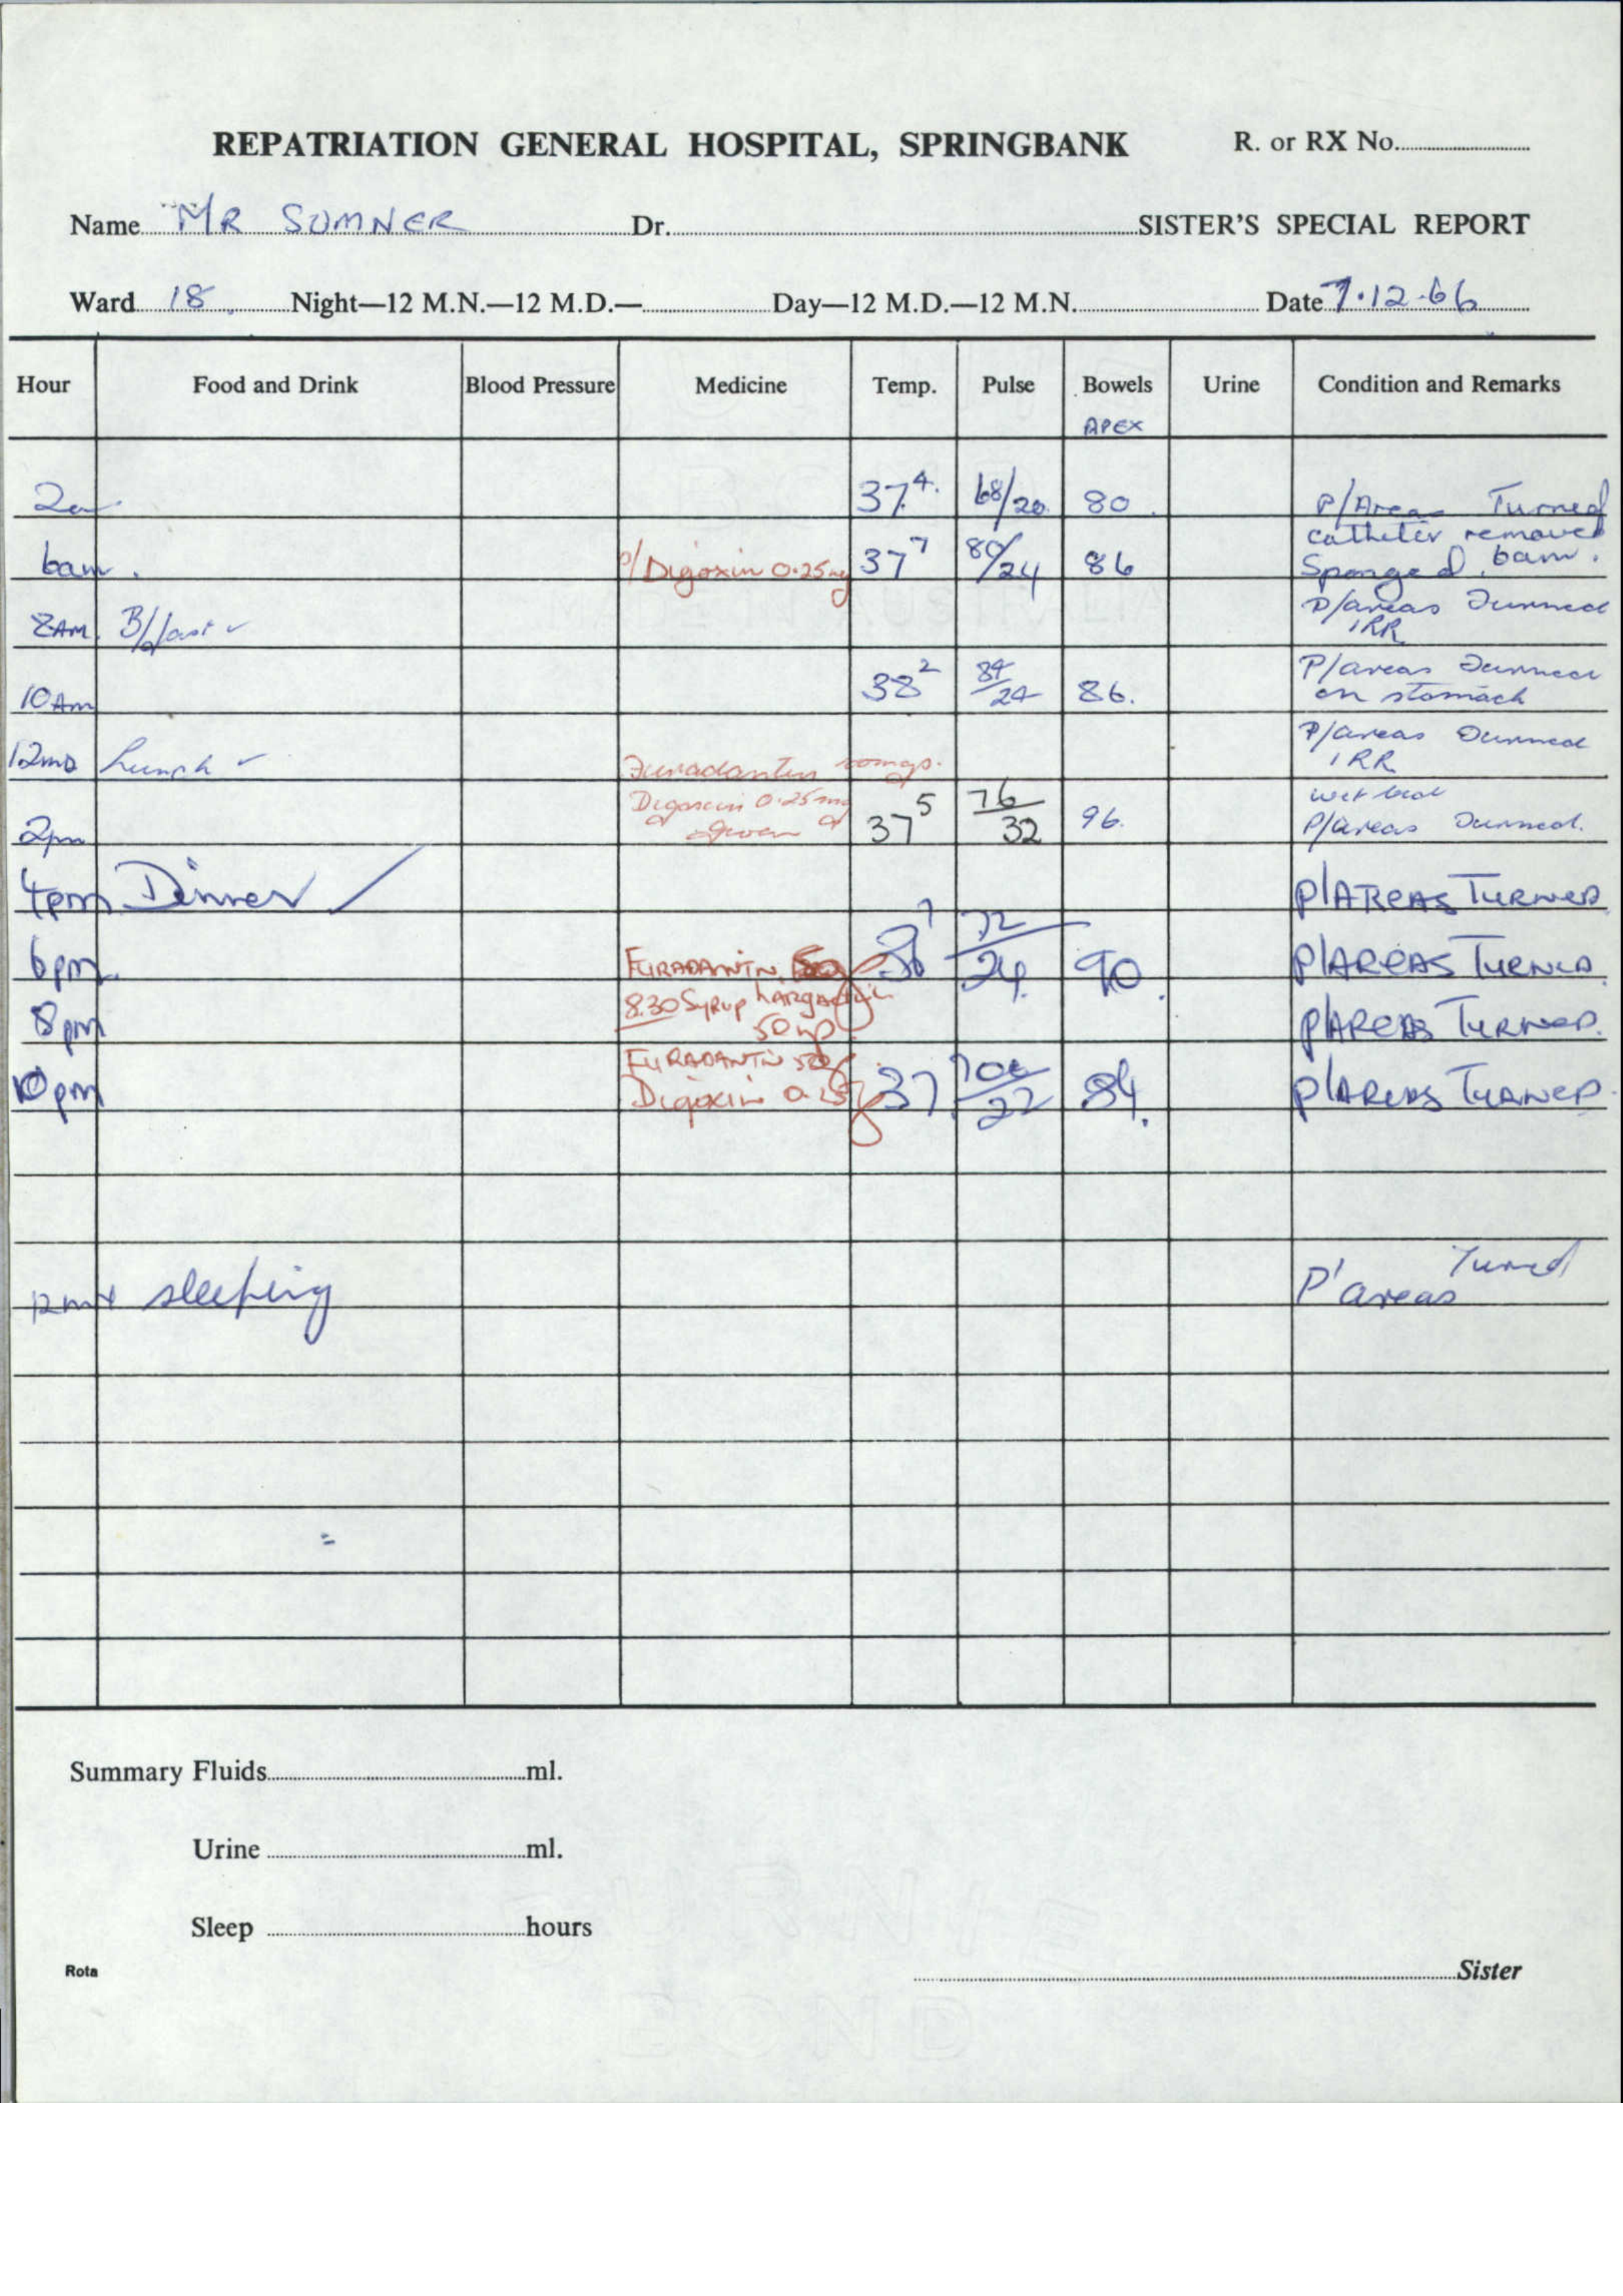 REPATRIATION GENERAL HOSPITAL, SPRINGBANK R. or RX No.
Name MR SUMNER Dr. SISTER'S SPECIAL REPORT
Ward 18. Night—12 M.N.—12 M.D.— Day—12 M.D.—12 M.N. Date 7.12.66
Hour Food and Drink Blood Pressure Medicine Temp. Pulse Bowels Urine Condition and Remarks
APEX
2a 37.4 68/20 80 P/Areas Turned
catheter removed
6am. Digoxin 0.25mg 37 7 80/24 86 Sponged 6am.
8AM B/fast ✓ P/areas Turned
IRR
10AM 38 2 84/24 86. P/areas Turned
on stomach
12MD Lunch ✓ Furadantin P/areas Turned
IRR
2pm Digoxin 0.25mg given 37 5 76/32 96. wet bed
P/areas Turned.
4pm Dinner ✓ P/AREAS TURNED
6pm. FURADANTIN 72/24 90. P/AREAS TURNED.
8pm 8.30 SYRUP LARGACTIL P/AREAS TURNED.
50
10pm FURADANTIN 50
Digoxin 0.25 37 100/22 84. P/AREAS TURNED.
12mn sleeping P'areas Turned
Summary Fluids ml.
Urine ml.
Sleep hours
Rota Sister